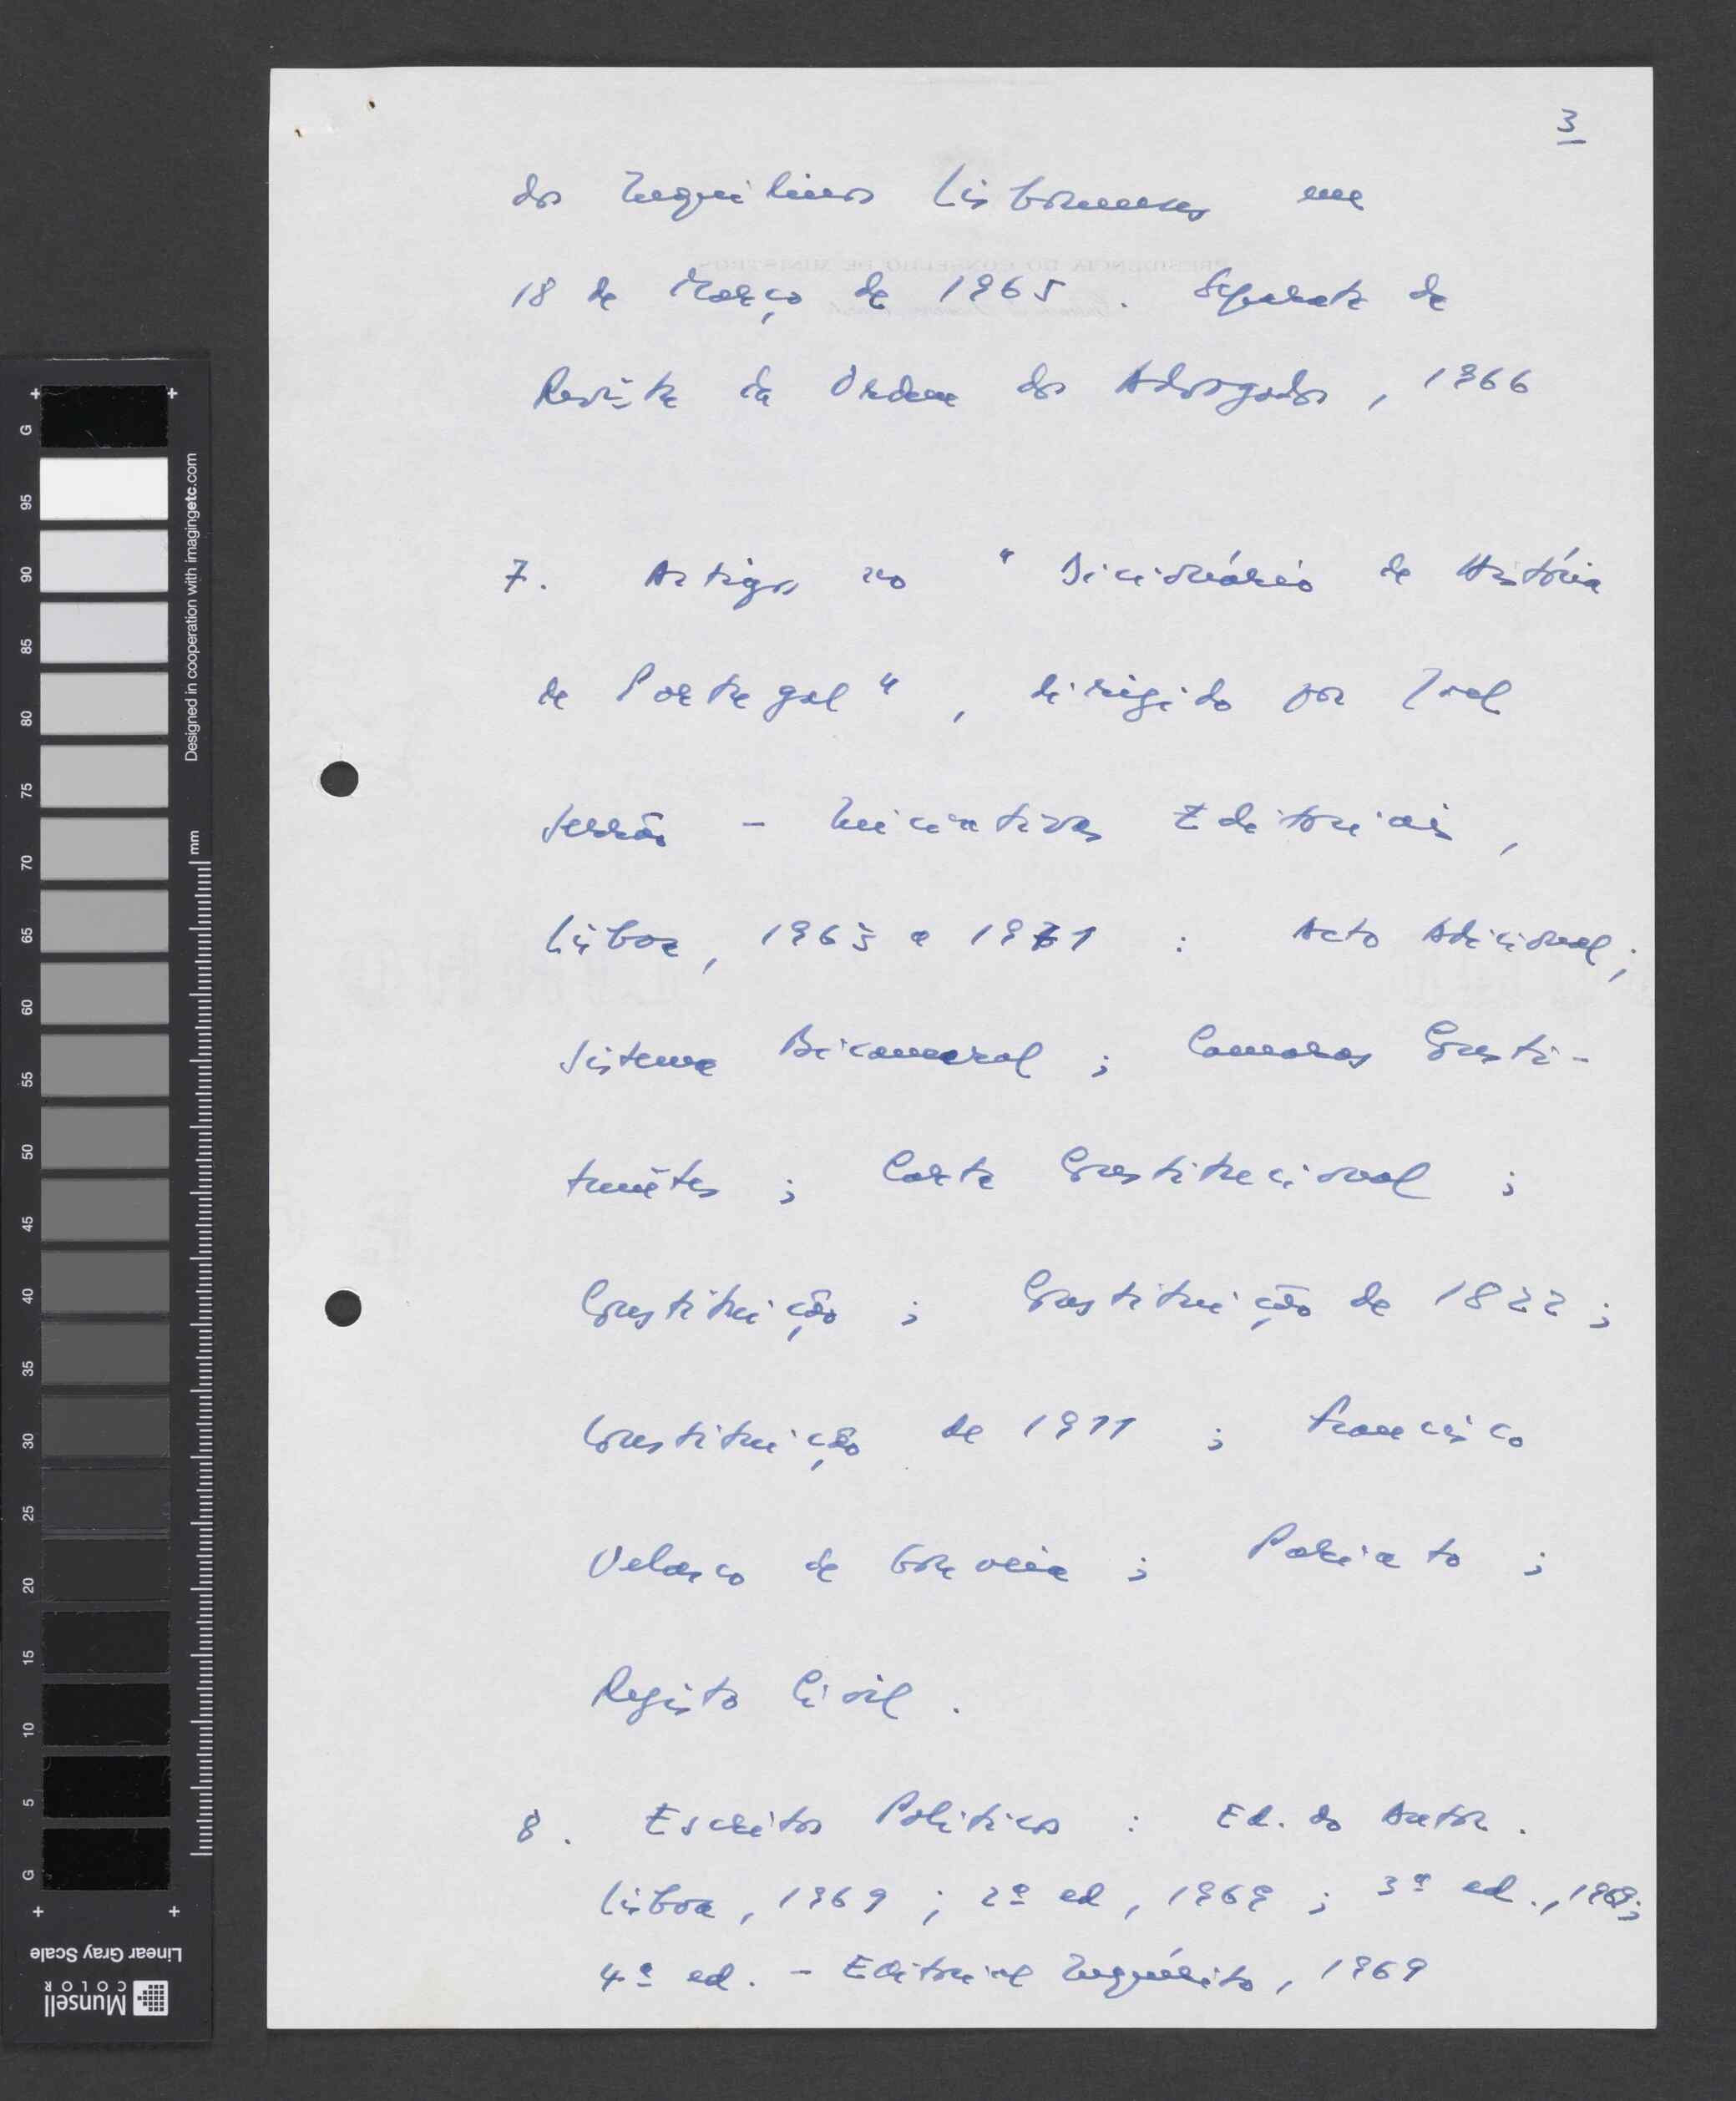 3
dos Inquilinos Lisbonenses em
18 de Março de 1965. Separata da
Revista da Ordem dos Advogados, 1966
7. Artigos no "Dicionário de História
de Portugal", dirigido por Joel
Serrão - Iniciativas Editoriais,
Lisboa, 1965 a 1971 : Acto Adicional;
Sistema Bicameral ; Camaras Consti-
tuintes ; Carta Constitucional ;
Constituição ; Constituição de 1822 ;
Constituição de 1911 ; Francisco
Velasco de Gouveia ; Pariato ;
Registo Civil .
8. Escritos Politicos : Ed. do Autor.
Lisboa, 1969 ; 2ª ed, 1969 ; 3ª ed., 1969;
4ª ed. - Editorial Inquérito, 1969
PRESIDENCIA DO CONSELHO DE MINISTROS
G 95 90 85 80 75 70 65 60 55 50 45 40 35 30 25 20 15 10 5 G
Designed in cooperation with imagingetc.com
mm
Linear Gray Scale
Munsell
COLOR